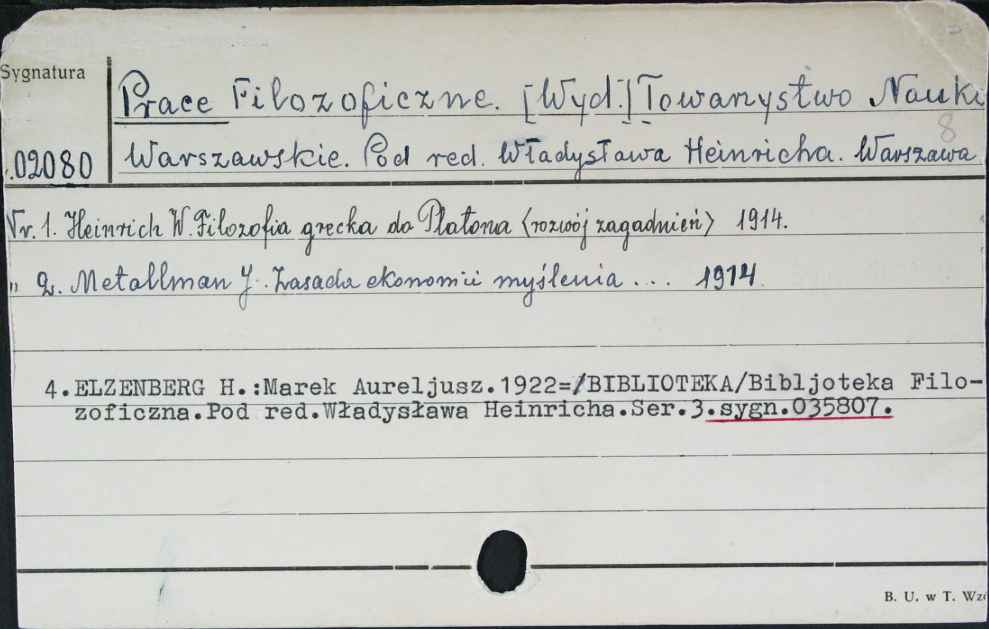 Sygnatura
Prace Filozoficzne. [Wyd.] Towarzystwo Nauk
8
02080
Warszawskie. Pod red. Władysława Heinricha. Warszawa
Nr. 1. Heinrich W. Filozofia grecka do Platona (rozwój zagadnień) 1914.
" 2. Metallman J. Zasada ekonomii myślenia ... 1914
4.ELZENBERG H.:Marek Aureljusz.1922=/BIBLIOTEKA/Bibljoteka Filo-
zoficzna.Pod red.Władysława Heinricha.Ser.3.sygn.035807.
B. U. w T. Wz